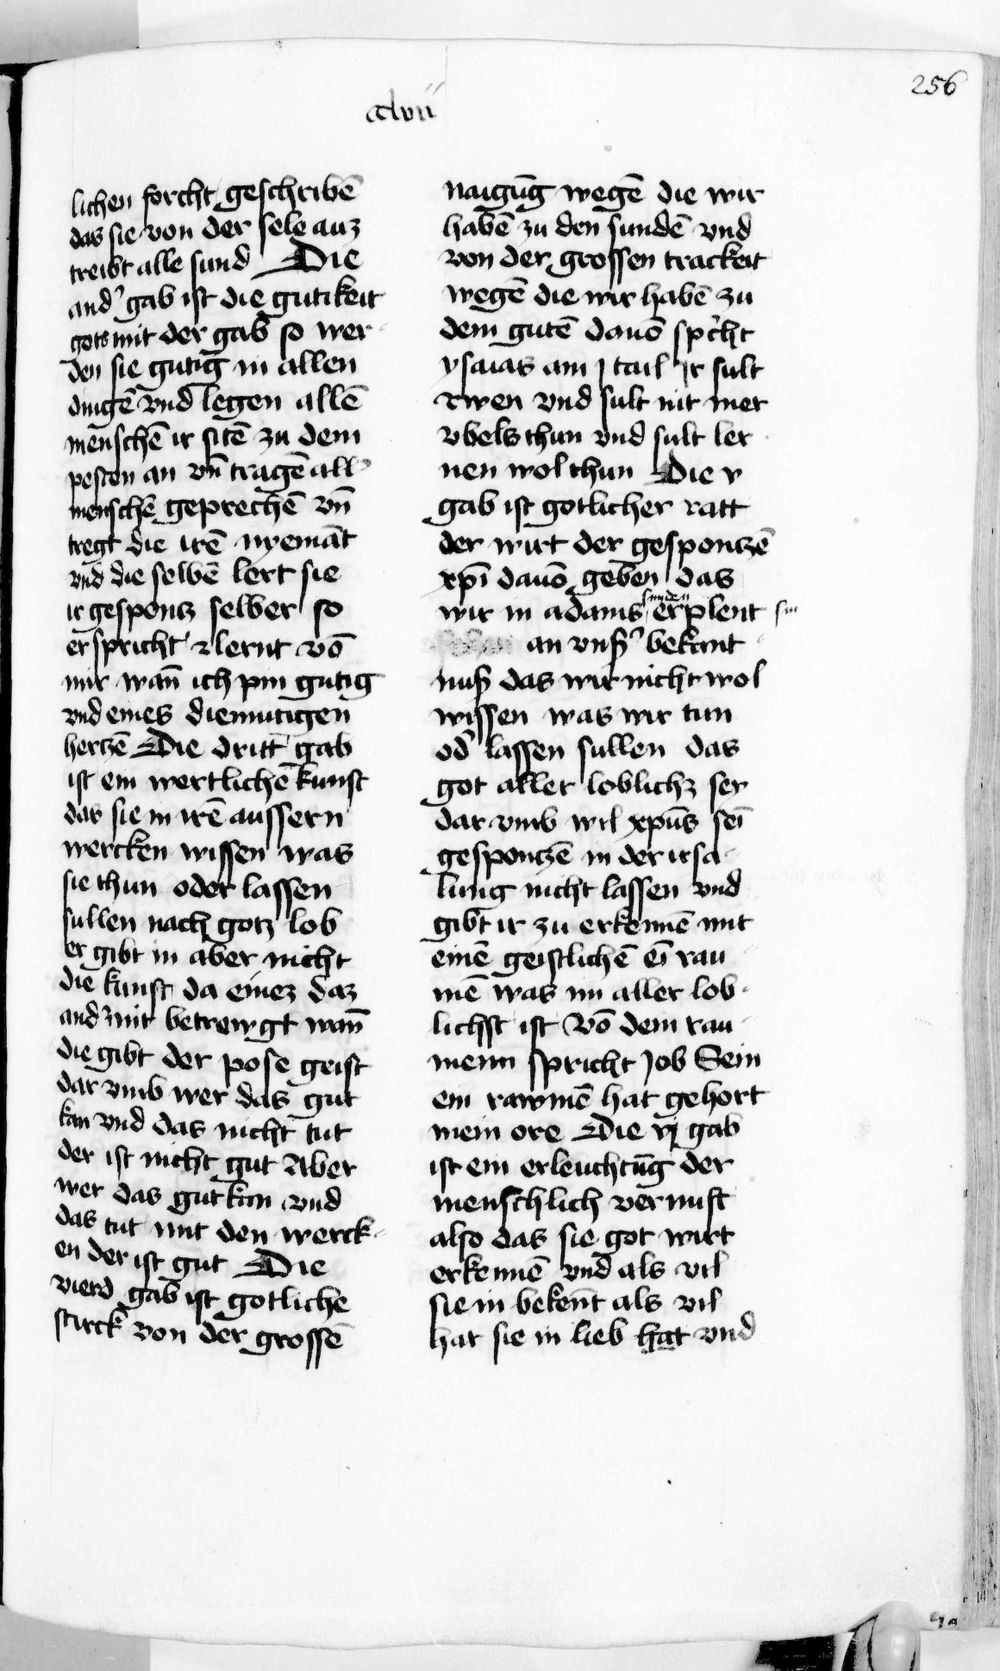 256
clvii
lichen forcht geschribē
das sie von der sele auz
treibt alle sund Die
and᾽ gab ist die gutikeit
gots mit der gab so wer
den sie gutig in allen
dingē vnd legen allē
menschē ir sitē zu dem
pesten an vn̄ tragē all᾽
menschē geprechē vn̄
tregt die irē nyemāt
vnd die selbē lert sie
ir gesponcz selber so
er spricht lernt vō
mir wan̄ ich pin gutig
vnd eines diemutigen
herczē Die dritt gab
ist ein wertlichē kunst
dar sie in irē aussern
wercken wissen was
sie thun oder lassen
sullen nach gotz lob
er gibt in aber nicht
die kunst da einez daz
and᾽ mit betrewgt wan̄
die gibt der pose geist
dar vmb wer das gut
kan vnd das nicht tut
der ist nicht gut Aber
wer das gut kan vnd
das tut mit den werck
en der ist gut Die
vierd gab ist gotliche
stirck von der grossē
naigūg wegē die wir
habē zu den sundē vnd
von der grossen trackeit
wegē die wir habē zu
dem gutē dauō sp᾽cht
ysaias am j tail Ir sult
rwen vnd sult nit mer
vbels thun vnd sult ler
nen wol thun Die v
gab ist gotlicher ratt
der wirt der gesponczē
xpī dauō geben das
wir in adams sunden erplent sin
an vnß᾽ bekant
nuß das wir nicht wol
wissen was wir tun
od᾽ lassen sullen das
got aller loblichz sey
dar vmb wil xpūs sei̅
gesponczē in der irsa
lung nicht lassen vnd
gibt ir zu erkennē mit
einē geistlichē ei̅ rau
mē was im aller lob
lichst ist Vō dem rau
menn spricht Job Sein
ein rawmē hat gehort
mein ore Die vj gab
ist ein erleuchtūg der
menschlich vernuft
also das sie got wirt
erkennē vnd als vil
sie in bekēnt als vil
hat sie in lieb hat vnd